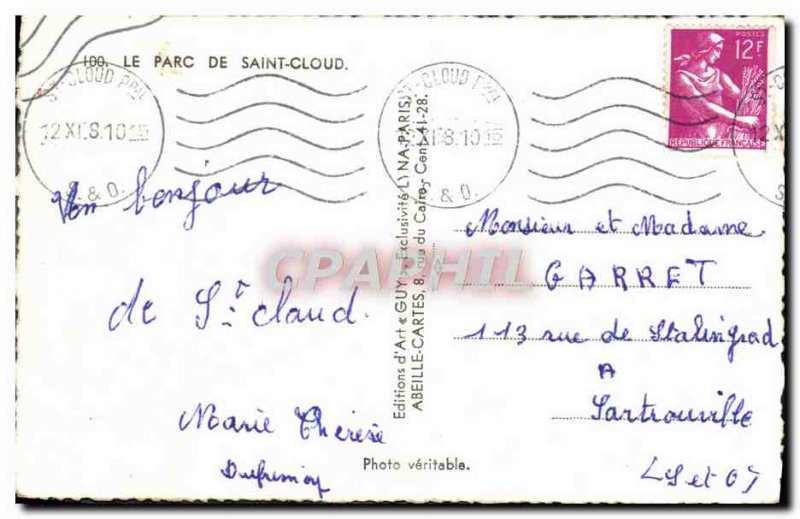 100. LE PARC DE SAINT-CLOUD.
12F
POSTES
REPUBLIQUE FRANÇAISE
ST-CLOUD PPAL
12 XI 8.10
S. & O.
ST-CLOUD PPAL
12 XI 8.10
S. & O.
12 X
Un bonjour
de St Claud.
Marie Thérèse
Dufresnoy
Editions d'Art « GUY » Exclusivité LYNA-PARIS
ABEILLE-CARTES, 8, rue du Caire - Cent 41-28.
CPAPHIL
Monsieur et Madame
GARRET
113 rue de Stalingrad
A
Sartrouville
(S et O)
Photo véritable.